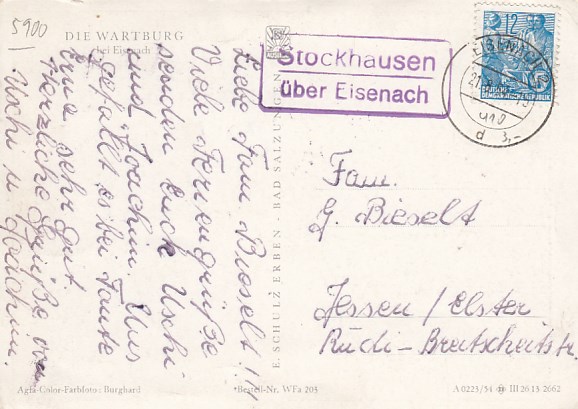 5900
DIE WARTBURG
bei Eisenach
Liebe Fam. Bieselt!!!
Viele Feriengrüße
senden Euch Uschi
und Joachim. Uns
gefällt es bei Tante
Erna sehr gut.
Herzliche Grüße von
Uschi u. Joachim.
Agfa-Color-Farbfoto: Burghard
E. SCHULZ ERBEN - BAD SALZUNGEN
Bestell-Nr. WFa 203
Stockhausen
über Eisenach
12
DEUTSCHE
DEMOKRATISCHE REPUBLIK
EISENACH
d 3,-
Fam.
G. Bieselt
Jessen / Elster
Rudi-Breitscheitstr.
A 0223/54 III 26 13 2662